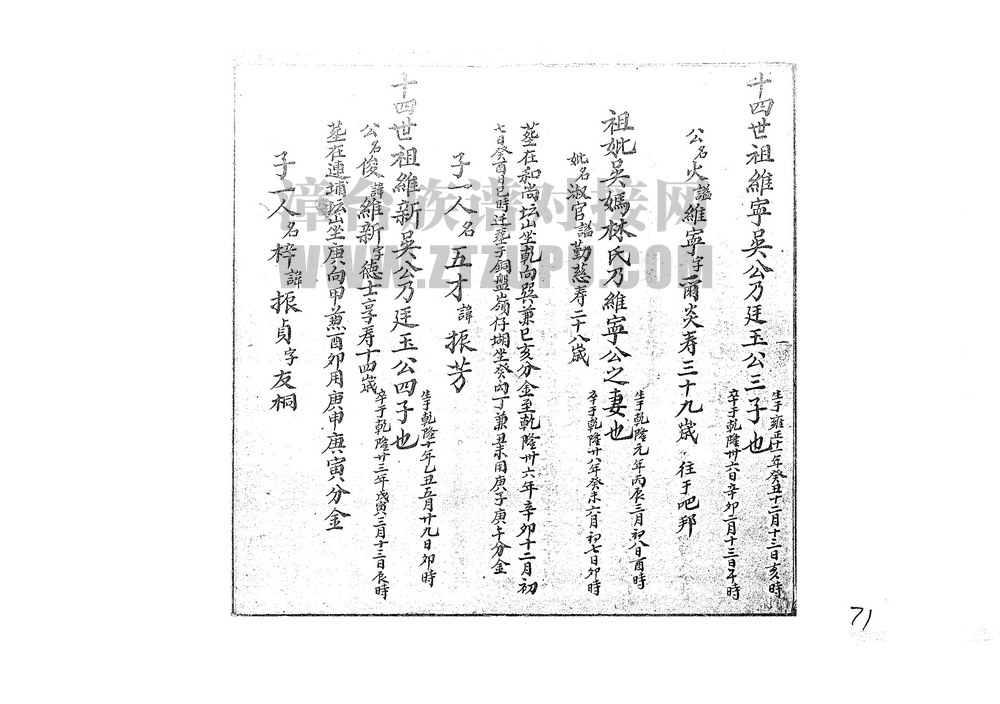 十四世祖維寧吳公乃廷玉公三子也
生于雍正十一年癸丑十二月十三日亥時
卒于乾隆卅六日辛卯二月十三日午時
公名火諡維寧字爾炎寿三十九歲 往于吧邦
祖妣吳媽林氏乃維寧公之妻也
生于乾隆元年丙辰三月初八日酉時
卒于乾隆廿八年癸未六月初七日卯時
妣名淑官諡勤慈寿二十八歲
塟在和尚坛山坐乾向巽兼巳亥分金至乾隆卅六年辛卯十二月初
七日癸酉日巳時迁塟于銅盤嶺仔塴坐癸向丁兼丑未用庚子庚午分金
子一人名五才諱振芳
十四世祖維新吳公乃廷玉公四子也
生于乾隆十年乙丑五月廿九日卯時
卒于乾隆廿三年戊寅三月十三日辰時
公名俊諱維新字德士享寿十四歲
塟在連埔坛山坐庚向甲兼酉卯用庚申庚寅分金
子一人名梓諱振貞字友桐
漳台族谱对接网
WWW.ZTZUPU.COM
71